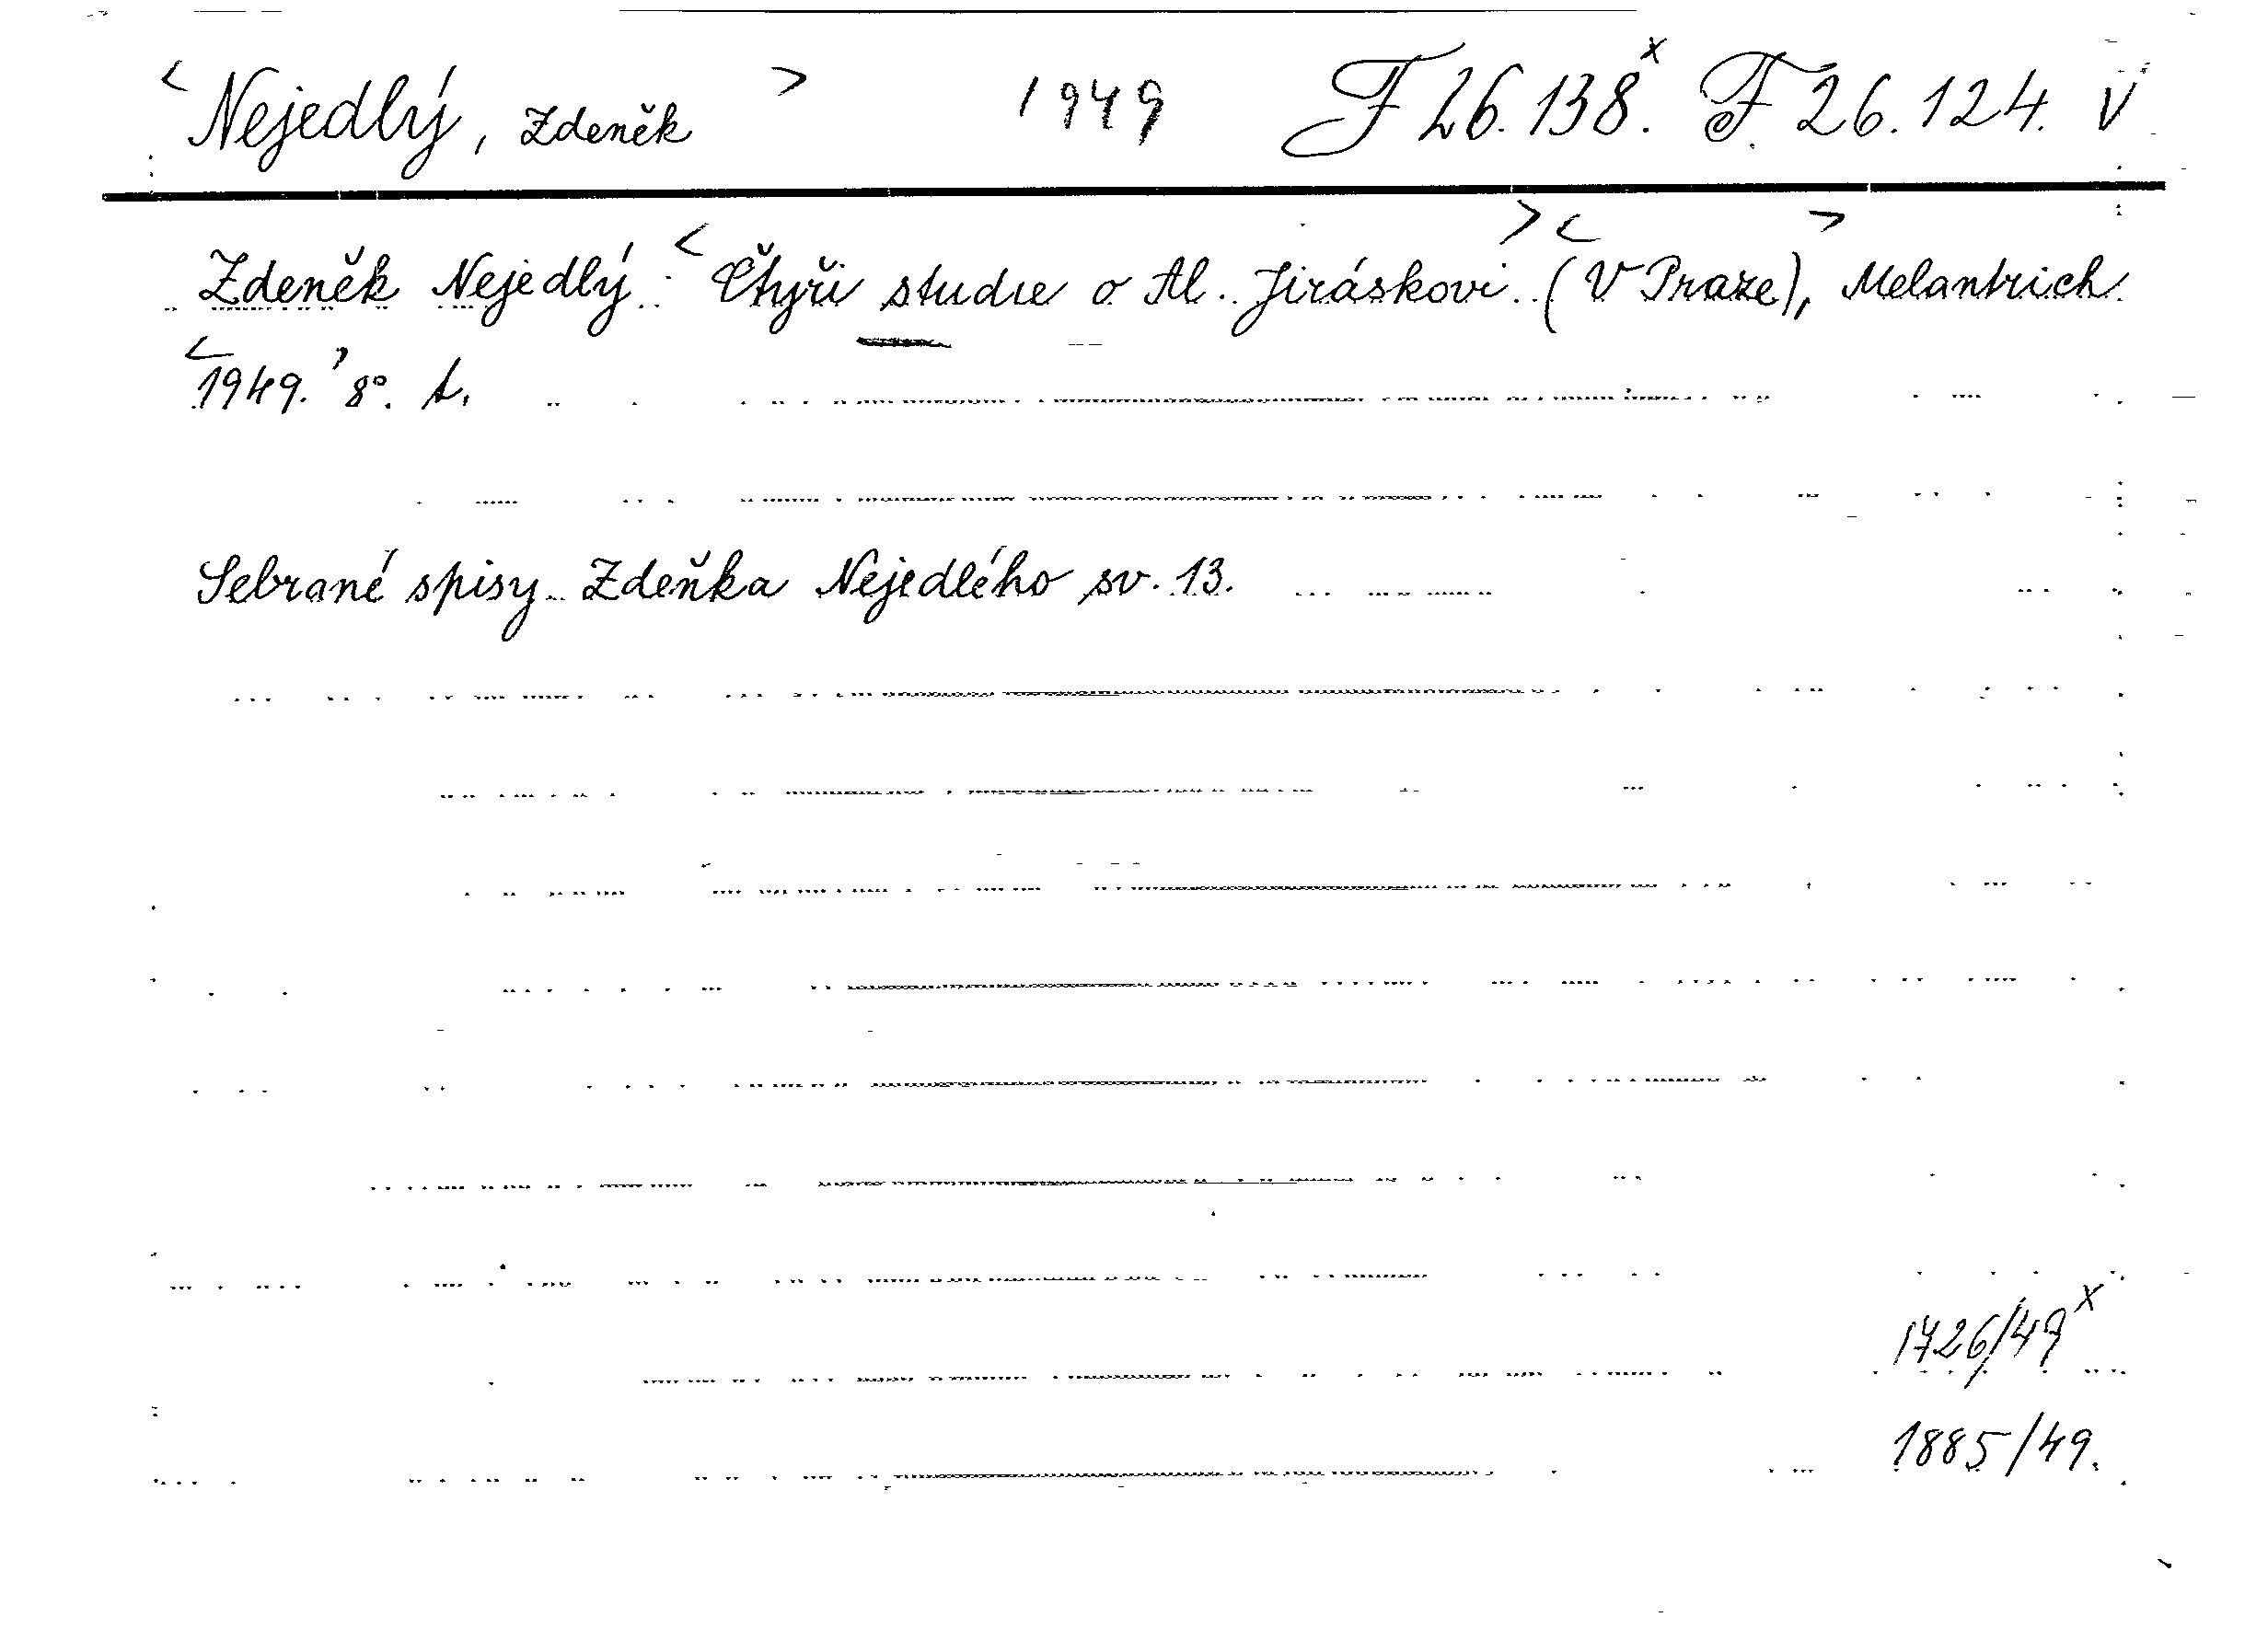 < Nejedlý, Zdeněk > 1949 F 26.138.x F. 26.124. V
Zdeněk Nejedlý: < Čtyři studie o Al. Jiráskovi. > < (V Praze), > Melantrich
< 1949. > 8°. t.
Sebrané spisy Zdeňka Nejedlého sv. 13.
1726/49 x
1885/49.